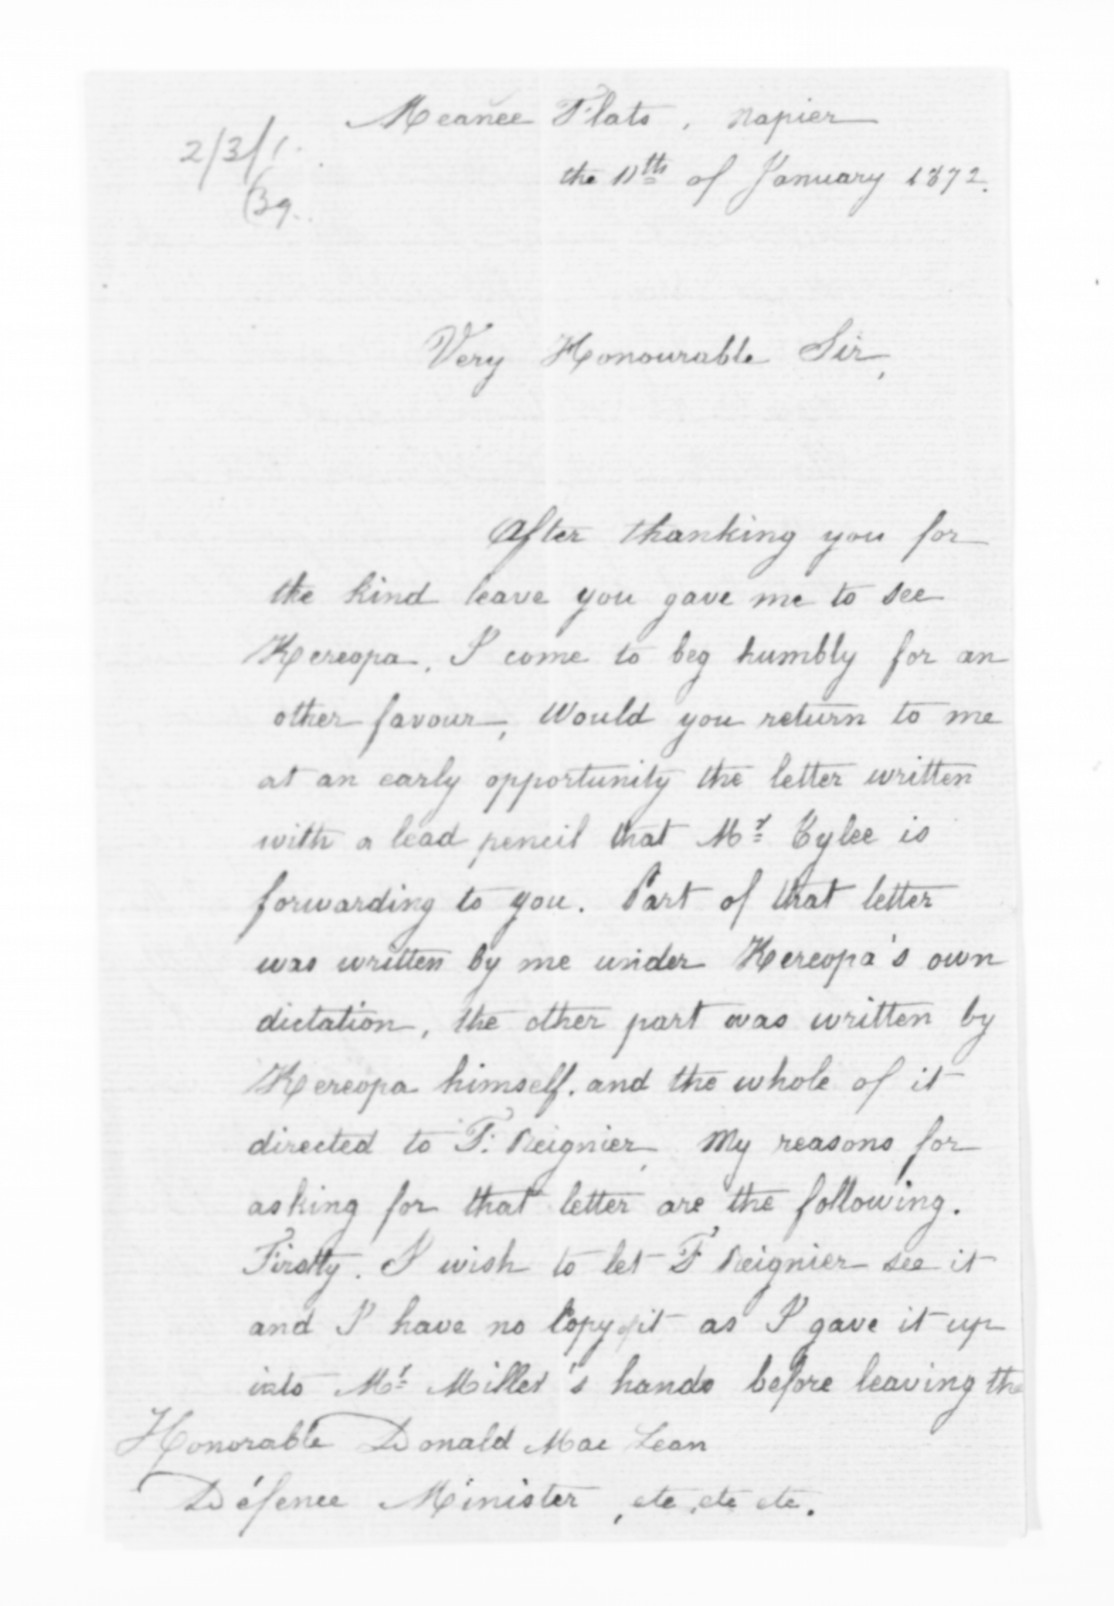 Meanee Flats, Napier
2/3/1.
the 11th of January 1872.
Very Honourable Sir,
After thanking you for
the kind leave you gave me to see
Kereopa, I come to beg humbly for an
other favour, Would you return to me
at an early opportunity the letter written
with a lead pencil that Mr Tylee is
forwarding to you. Part of that letter
was written by me under Kereopa's own
dictation, the other part was written by
Kereopa himself. and the whole of it
directed to F. Reignier. My reasons for
asking for that letter are the following.
Firstly. I wish to let F Reignier see it
and I have no Copy of it as I gave it up
into Mr Miller's hands before leaving the
Honorable Donald Mac Lean
Défence Minister, etc, etc etc.